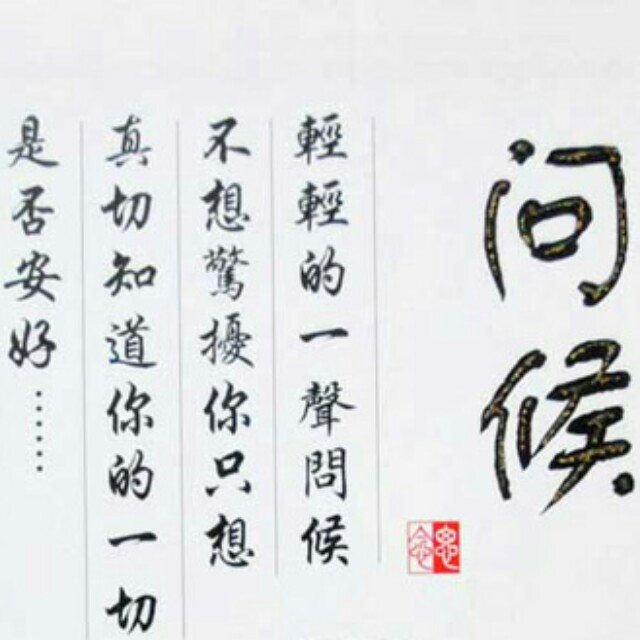 问候
輕輕的一聲問候
不想驚擾你只想
真切知道你的一切
是否安好……